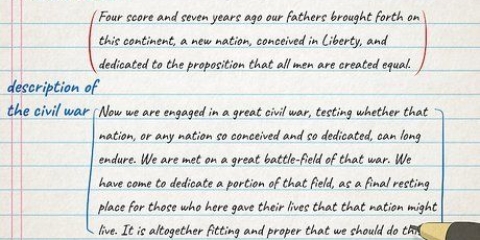 Four score and seven years ago our fathers brought forth on
this continent, a new nation, conceived in Liberty, and
dedicated to the proposition that all men are created equal.
description of
the civil war
Now we are engaged in a great civil war, testing whether that
nation, or any nation so conceived and so dedicated, can long
endure. We are met on a great battle-field of that war. We
have come to dedicate a portion of that field, as a final resting
place for those who here gave their lives that that nation might
live. It is altogether fitting and proper that we should do